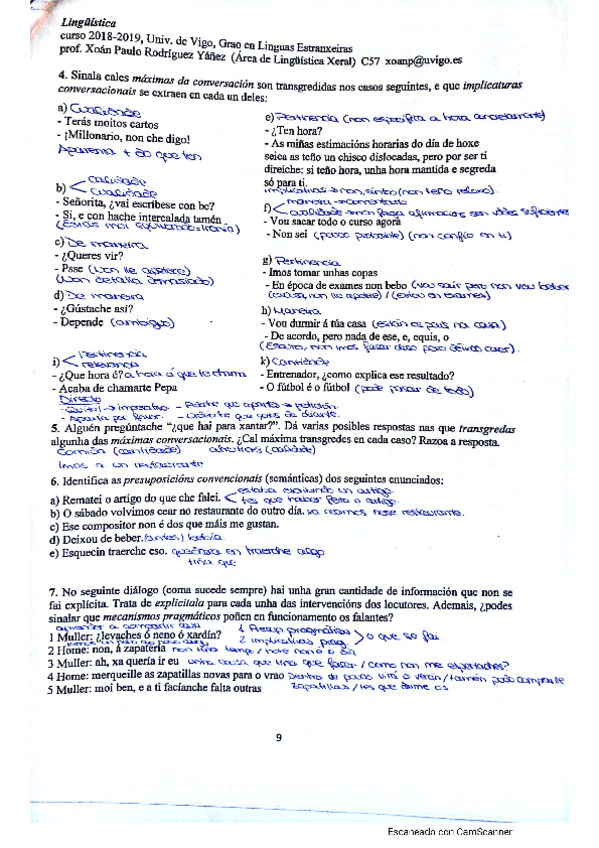 Lingüística
curso 2018-2019, Univ. de Vigo, Grao en Linguas Estranxeiras
prof. Xoán Paulo Rodríguez Yáñez (Área de Lingüística Xeral) C57 xoanp@uvigo.es
4. Sinala cales máximas da conversación son transgredidas nos casos seguintes, e que implicaturas
conversacionais se extraen en cada un deles:
a) Cualidade
- Terás moitos cartos
- ¡Millonario, non che digo!
Aparenta + do que ten
b) calidade
cualidade
- Señorita, ¿vai escríbese con be?
- Si, e con hache intercalada tamén
c) De maneira
- ¿Queres vir?
- Psse (Non lle apetece)
(Non detalla demasiado)
d) De maneira
- ¿Gústache así?
- Depende (ambiguo)
e) Pertinencia (non especifica a hora
- ¿Ten hora?
- As miñas estimacións horarias do día de hoxe
seica as teño un chisco dislocadas, pero por ser ti
direiche: si teño hora, unha hora mantida e segreda
só para ti.
implicatura → non, sinto (non teño reloxo).
f) maneira
cualidade → non
- Vou sacar todo o curso agora
- Non sei (pouco probable) (non confío en ti)
g) Pertinencia
- Imos tomar unhas copas
- En época de exames non bebo (vou saír pero non vou beber
(escusa, non lle apetece) / (estou en exames)
h) Maneira
- Vou durmir á túa casa (están os pais na casa)
- De acordo, pero nada de ese, e, equis, o
i) Pertinencia
relevancia
- ¿Que hora é? a hora á que te chama
- Acaba de chamarte Pepa
k) Cantidade
- Entrenador, ¿como explica ese resultado?
- O fútbol é o fútbol (pode pasar de todo)
Directo
5. Alguén pregúntache “¿que hai para xantar?”. Dá varias posibles respostas nas que transgredas
algunha das máximas conversacionais. ¿Cal máxima transgredes en cada caso? Razoa a resposta.
Comida (cantidade) (calidade)
Imos a un restaurante
6. Identifica as presuposicións convencionais (semánticas) dos seguintes enunciados:
a) Rematei o artigo do que che falei. estaba escribindo un artigo.
b) O sábado volvimos cear no restaurante do outro día. xa ceamos nese restaurante.
c) Ese compositor non é dos que máis me gustan.
d) Deixou de beber. (antes) bebía
e) Esquecín traerche eso. quedara en traerche algo
tiña que
7. No seguinte diálogo (coma sucede sempre) hai unha gran cantidade de información que non se
fai explícita. Trata de explicitala para cada unha das intervencións dos locutores. Ademais, ¿podes
sinalar que mecanismos pragmáticos poñen en funcionamento os falantes?
1 Muller: ¿levaches ó neno ó xardín? 1 Presup pragmáticas > o que se fai
2 Implicatias prag.
2 Home: non, á zapatería non tiña tempo /
3 Muller: ah, xa quería ir eu outra cousa que tiña que facer / como non me esperaches?
4 Home: merqueille as zapatillas novas para o vrao Dentro de pouco virá o verán / tamén podo comprarlle
5 Muller: moi ben, e a ti facíanche falta outras zapatillas / tes que darme os
9
Escaneado con CamScanner